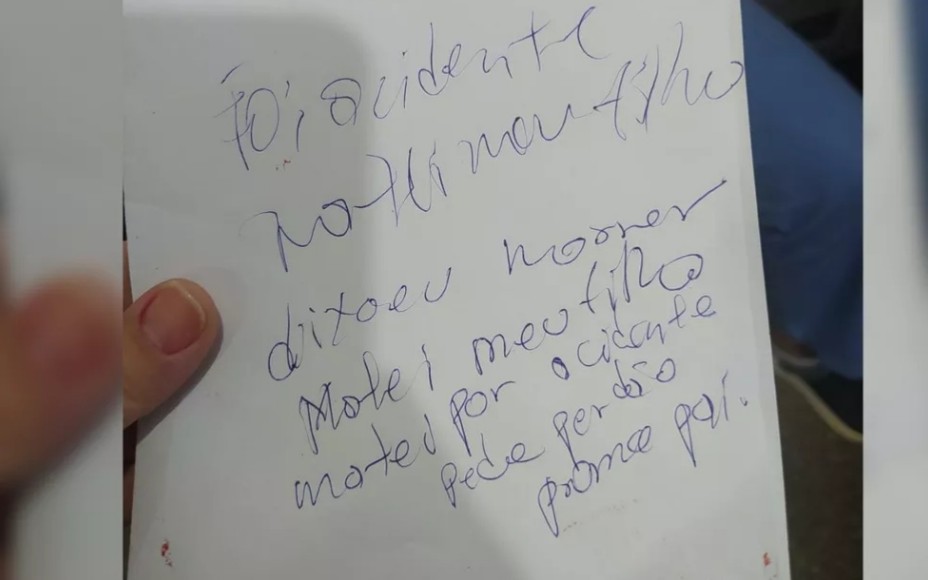 Foi acidente
matei meu filho
dixaeu morrer
Matei meu filho
matei por acidente
pede perdão
prame pai.